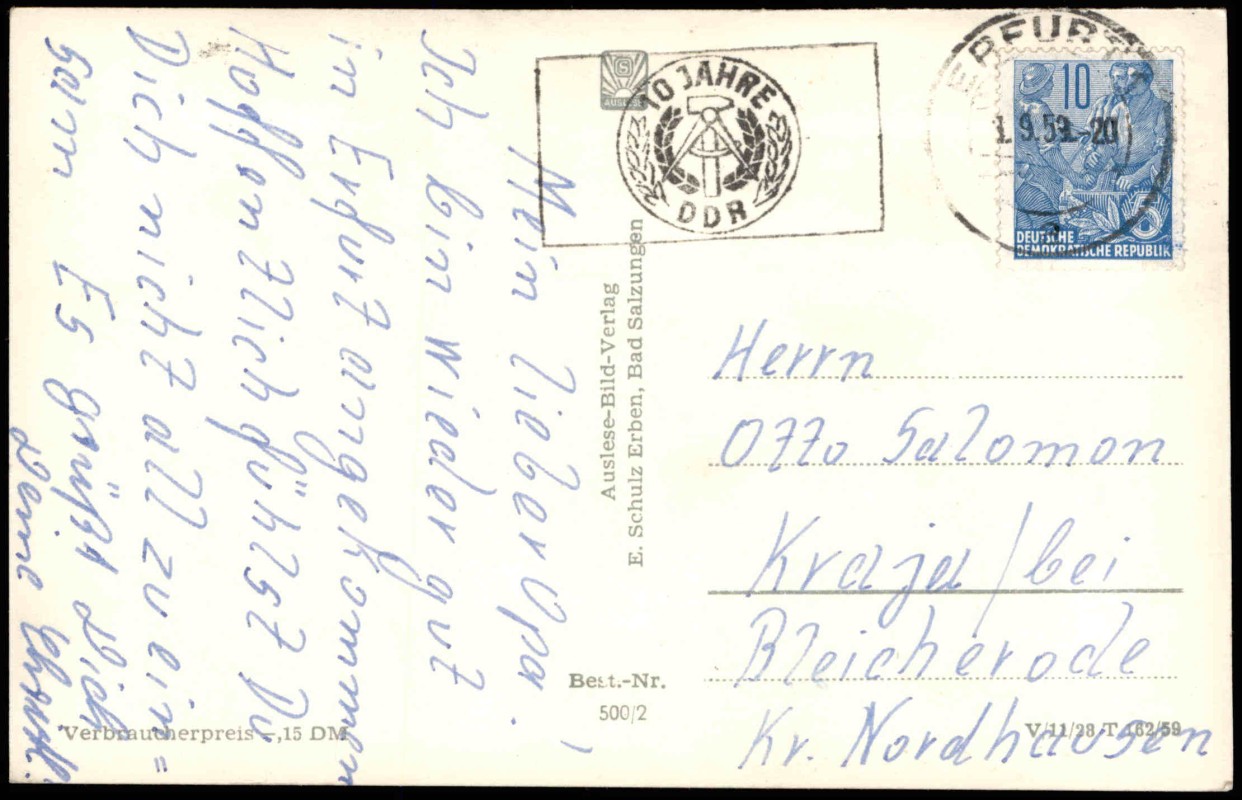 Mein lieber Opa.
Ich bin wieder gut
in Erfurt angekommen
Hoffentlich fühlst Du
Dich nicht all zu ein=
sam Es grüßt Dich
Deine
AUSLESE
10 JAHRE
DDR
ERFURT
1.9.59.-20
10
DEUTSCHE
DEMOKRATISCHE REPUBLIK
Auslese-Bild-Verlag
E. Schulz Erben, Bad Salzungen
Herrn
Otto Salomon
Kraja/bei
Bleicherode
Kr. Nordhausen
Best.-Nr.
500/2
Verbraucherpreis -,15 DM
V/11/28 T 162/59